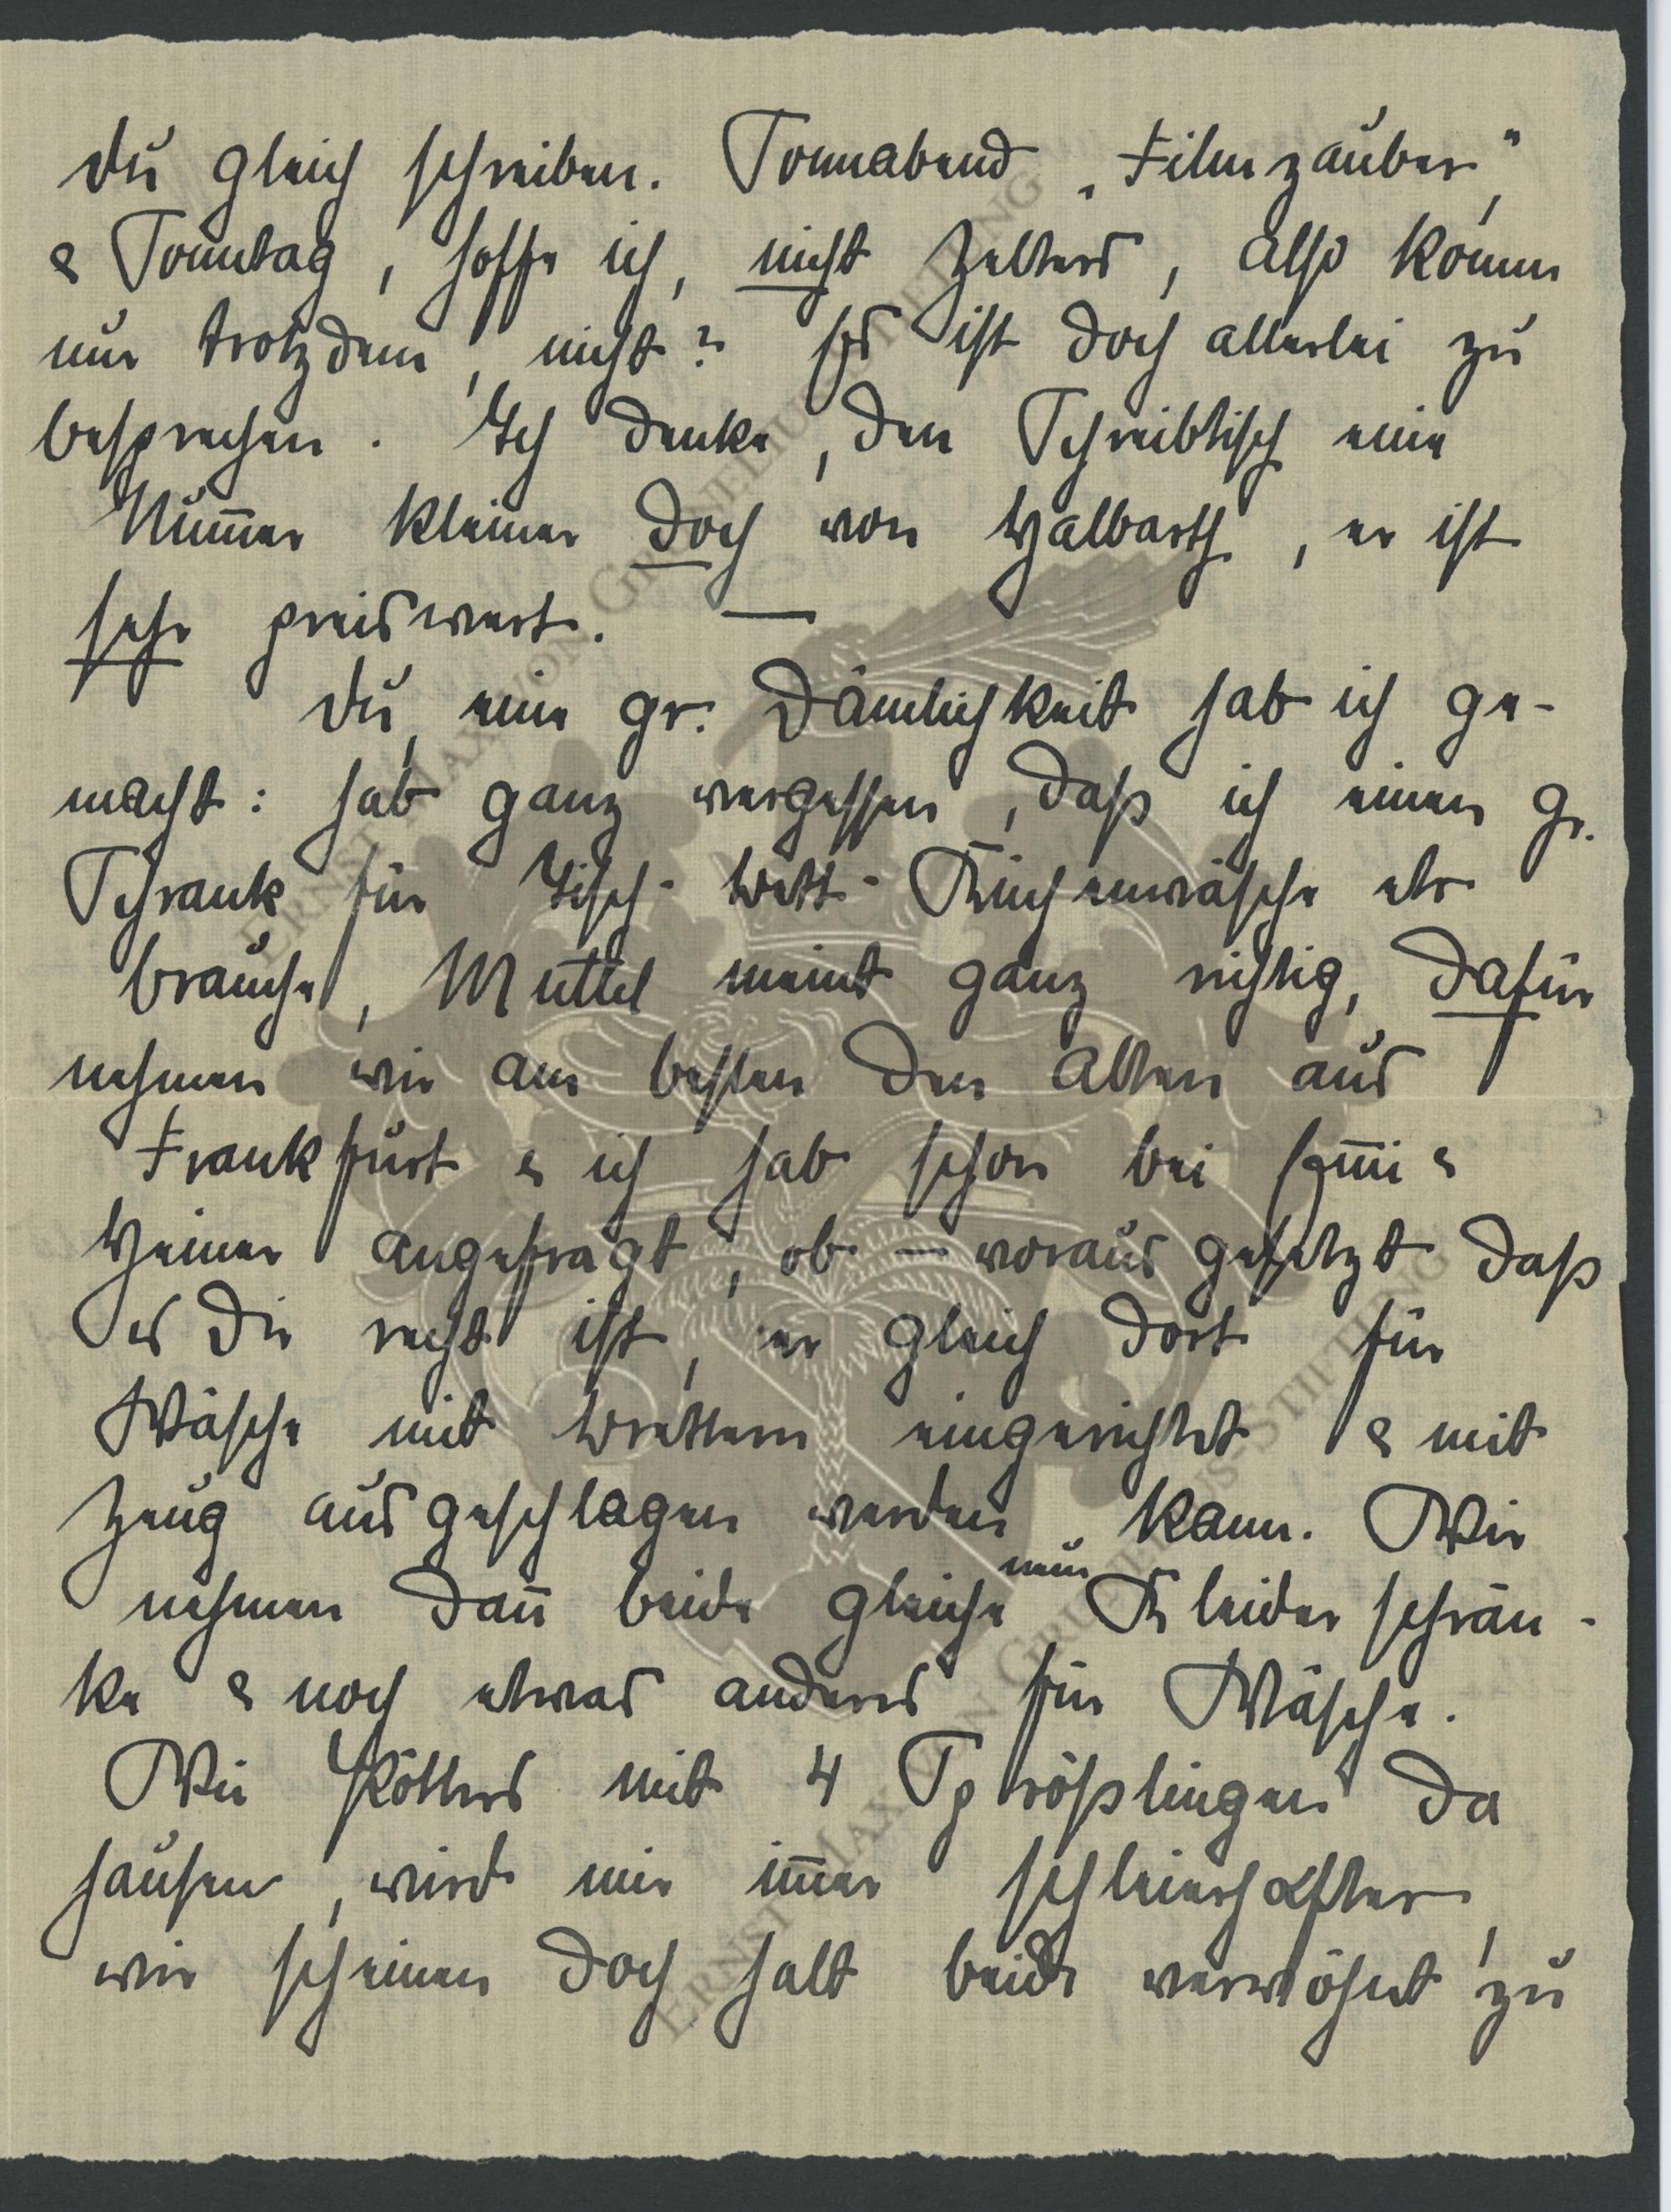 Du gleich schreiben. Sonnabend „Filmzauber",
& Sonntag, hoffe ich, nicht Zelters, also komm
nur trotzdem, nicht? Es ist doch allerlei zu
besprechen. Ich denke, den Schreibtisch eine
Num̅er kleiner doch von Halbarth, er ist
sehr preiswert. —
Du, eine gr. Dämlichkeit hab ich ge-
macht: hab ganz vergessen, daß ich einen gr.
Schrank für Tisch- Bett- Küchenwäsche etc
brauche, Muttel meint ganz richtig, dafür
nehmen wir am besten den alten aus
Frankfurt & ich hab schon bei Em̅i &
Heiner angefragt, ob — vorausgesetzt daß
es Dir recht ist, er gleich dort für
Wäsche mit Brettern eingerichtet & mit
Zeug ausgeschlagen werden kann. Wir
nehmen dan̅ beide gleiche neue Kleiderschrän-
ke & noch etwas anderes für Wäsche.
Wie Kötters mit 4 Sprößlingen da
hausen, wird mir im̅er schleierhafter,
wir scheinen doch halt beide verwöhnt zu
ERNST MAX VON GRUNELIUS-STIFTUNG
ERNST MAX VON GRUNELIUS-STIFTUNG